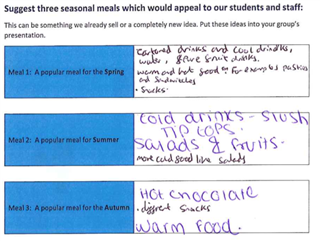 Suggest three seasonal meals which would appeal to our students and staff:
This can be something we already sell or a completely new idea. Put these ideas into your group's
presentation.
Meal 1: A popular meal for the Spring
drinks and cool drinks,
water, fruit drinks.
warm and hot food For examples pasties
and Sandwitches
• Snacks.
Meal 2: A popular meal for Summer
Cold drinks - Slush
TIP TOPS.
Salads & fruits.
more cold good like salads
Meal 3: A popular meal for the Autumn
Hot chocolate
• snacks
Warm Food.